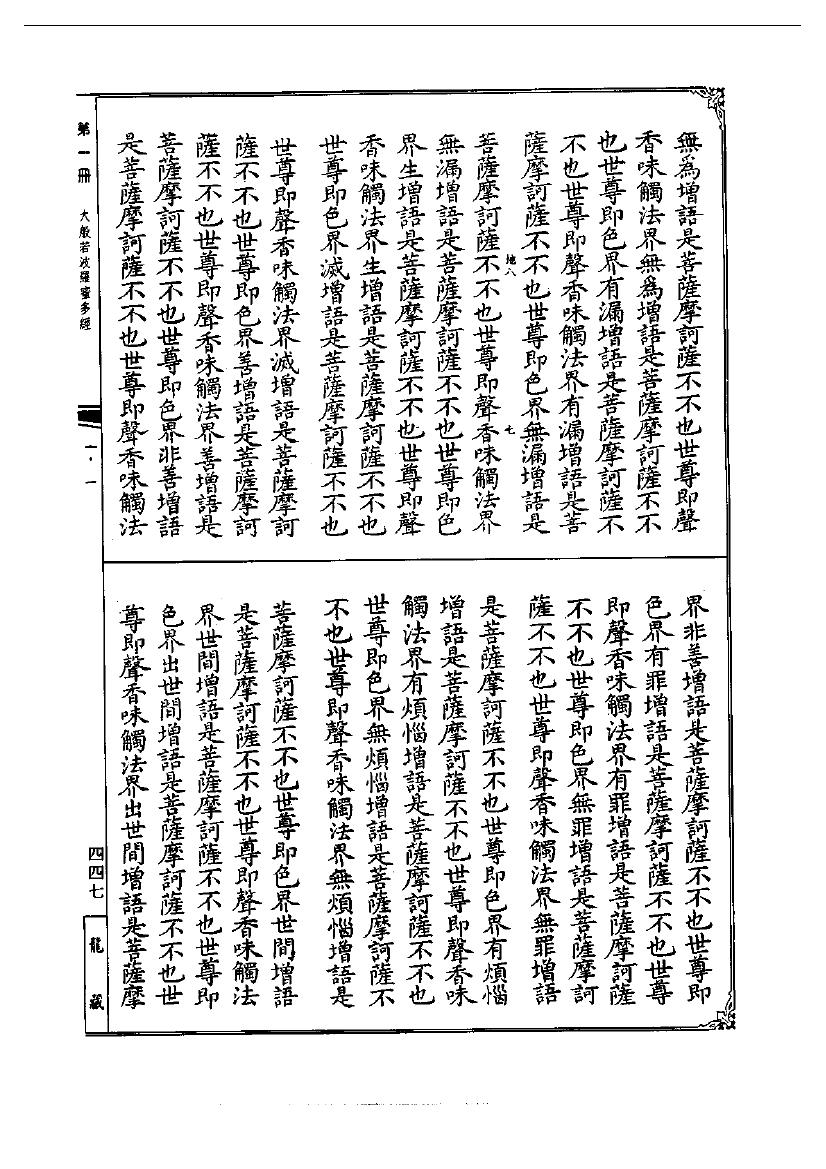 無為增語是菩薩摩訶薩不不也世尊即聲
香味觸法界無為增語是菩薩摩訶薩不不
也世尊即色界有漏增語是菩薩摩訶薩不
不也世尊即聲香味觸法界有漏增語是菩
薩摩訶薩不不也世尊即色界無漏增語是
地八 七
菩薩摩訶薩不不也世尊即聲香味觸法界
無漏增語是菩薩摩訶薩不不也世尊即色
界生增語是菩薩摩訶薩不不也世尊即聲
香味觸法界生增語是菩薩摩訶薩不不也
世尊即色界滅增語是菩薩摩訶薩不不也
世尊即聲香味觸法界滅增語是菩薩摩訶
薩不不也世尊即色界善增語是菩薩摩訶
薩不不也世尊即聲香味觸法界善增語是
菩薩摩訶薩不不也世尊即色界非善增語
是菩薩摩訶薩不不也世尊即聲香味觸法
界非善增語是菩薩摩訶薩不不也世尊即
色界有罪增語是菩薩摩訶薩不不也世尊
即聲香味觸法界有罪增語是菩薩摩訶薩
不不也世尊即色界無罪增語是菩薩摩訶
薩不不也世尊即聲香味觸法界無罪增語
是菩薩摩訶薩不不也世尊即色界有煩惱
增語是菩薩摩訶薩不不也世尊即聲香味
觸法界有煩惱增語是菩薩摩訶薩不不也
世尊即色界無煩惱增語是菩薩摩訶薩不
不也世尊即聲香味觸法界無煩惱增語是
菩薩摩訶薩不不也世尊即色界世間增語
是菩薩摩訶薩不不也世尊即聲香味觸法
界世間增語是菩薩摩訶薩不不也世尊即
色界出世間增語是菩薩摩訶薩不不也世
尊即聲香味觸法界出世間增語是菩薩摩
第一冊 大般若波羅蜜多經 一·一
四四七 龍藏